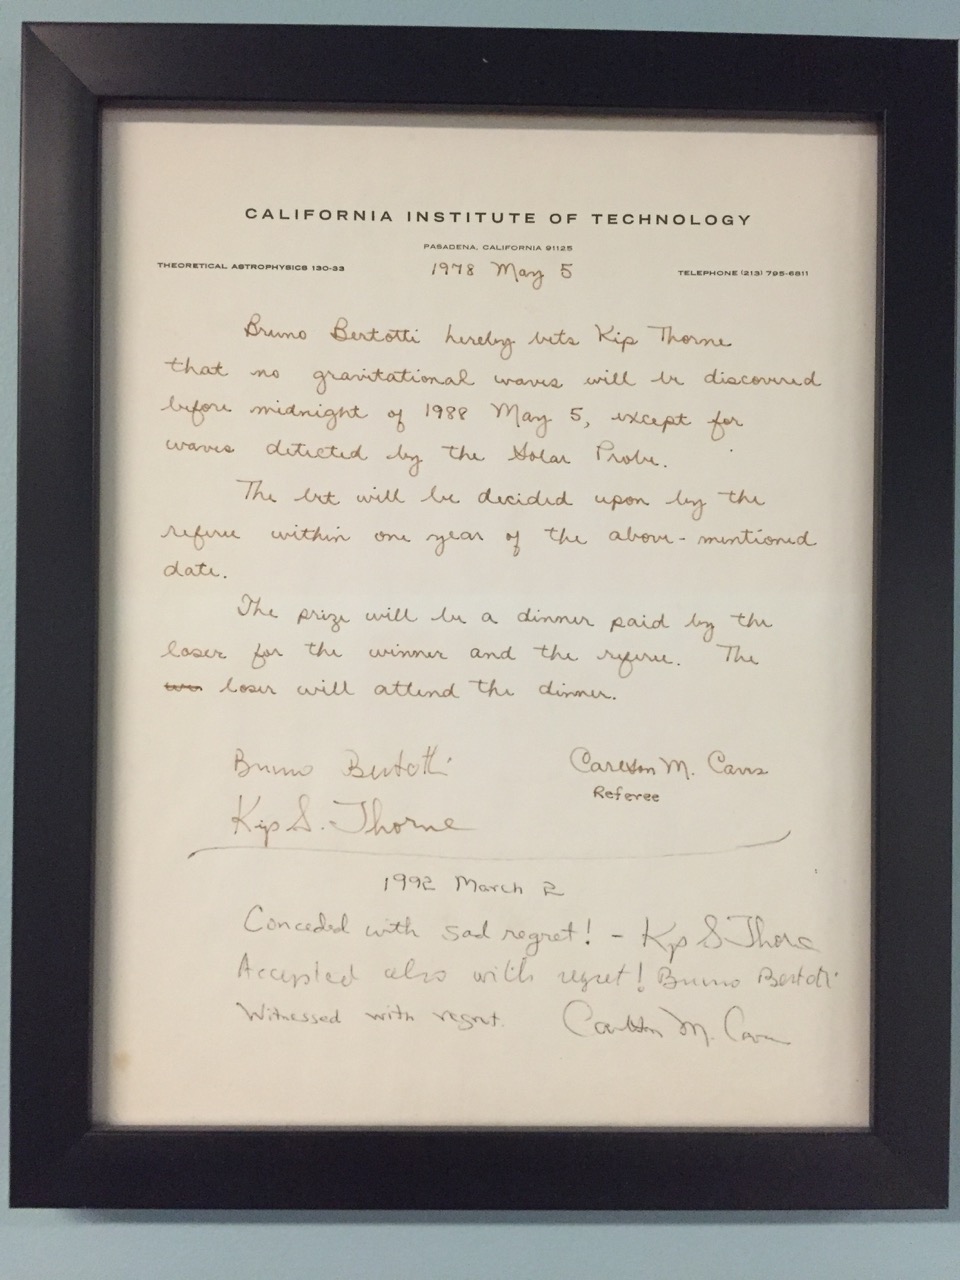 CALIFORNIA INSTITUTE OF TECHNOLOGY
PASADENA, CALIFORNIA 91125
THEORETICAL ASTROPHYSICS 130-33
1978 May 5
TELEPHONE (213) 795-6811
Bruno Bertotti hereby bets Kip Thorne
that no gravitational waves will be discovered
before midnight of 1988 May 5, except for
waves detected by the Solar Probe.
The bet will be decided upon by the
referee within one year of the above-mentioned
date.
The prize will be a dinner paid by the
loser for the winner and the referee. The
loser will attend the dinner.
Bruno Bertotti
Carlton M. Caves
Referee
Kip S. Thorne
1992 March 2
Conceded with sad regret! - Kip S Thorne
Accepted also with regret! Bruno Bertotti
Witnessed with regret. Carlton M. Caves